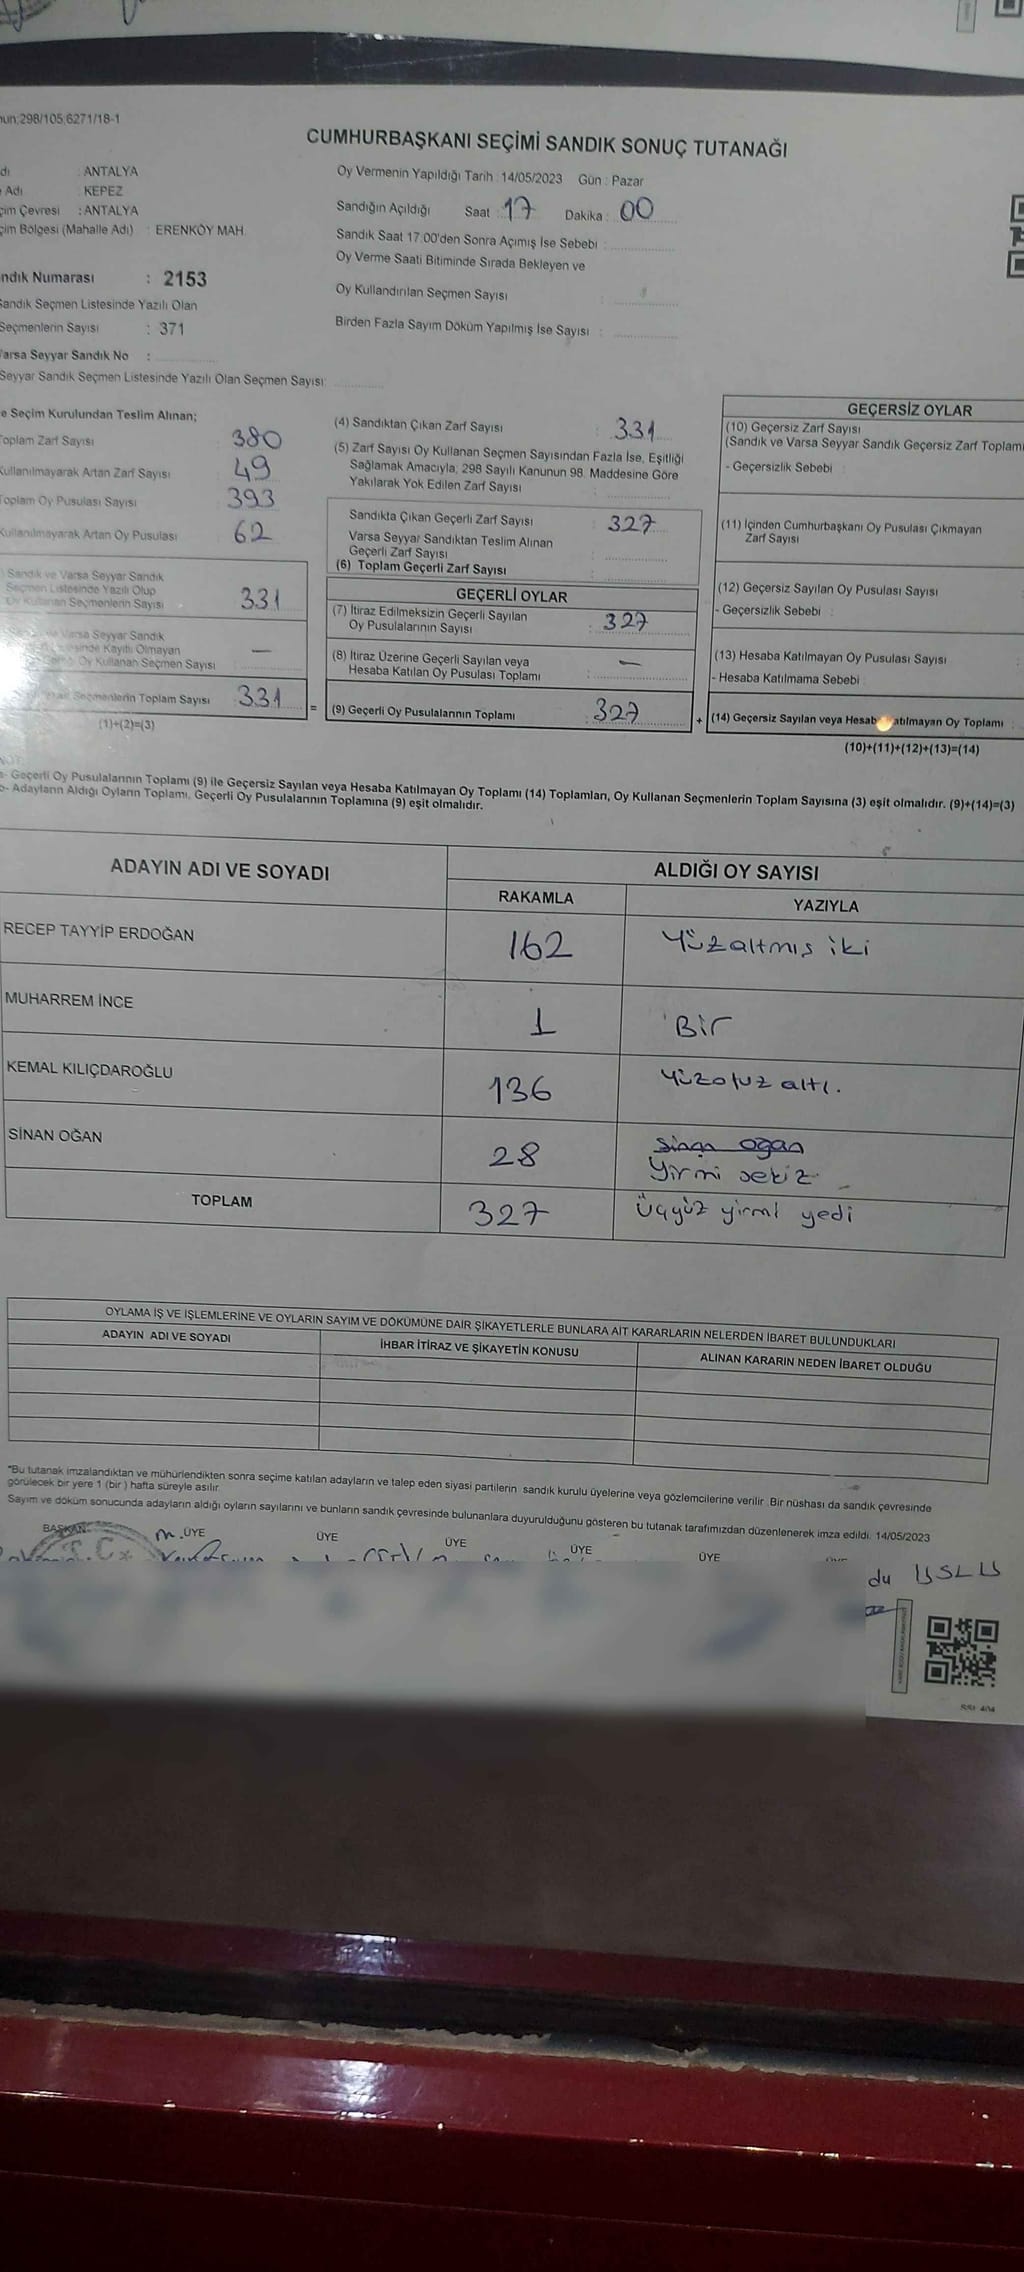 298/105;6271/18-1
CUMHURBAŞKANI SEÇİMİ SANDIK SONUÇ TUTANAĞI
: ANTALYA
Adı : KEPEZ
çim Çevresi : ANTALYA
çim Bölgesi (Mahalle Adı) : ERENKÖY MAH.
ndık Numarası : 2153
Sandık Seçmen Listesinde Yazılı Olan
Seçmenlerin Sayısı : 371
Varsa Seyyar Sandık No :
Seyyar Sandık Seçmen Listesinde Yazılı Olan Seçmen Sayısı:
Oy Vermenin Yapıldığı Tarih : 14/05/2023 Gün : Pazar
Sandığın Açıldığı Saat : 17 Dakika : 00
Sandık Saat 17:00'den Sonra Açımış İse Sebebi :
Oy Verme Saati Bitiminde Sırada Bekleyen ve
Oy Kullandırılan Seçmen Sayısı :
Birden Fazla Sayım Döküm Yapılmış İse Sayısı :
e Seçim Kurulundan Teslim Alınan;
Toplam Zarf Sayısı : 380
Kullanılmayarak Artan Zarf Sayısı : 49
Toplam Oy Pusulası Sayısı : 393
Kullanılmayarak Artan Oy Pusulası : 62
Sandık ve Varsa Seyyar Sandık
Seçmen Listesinde Yazılı Olup
Oy Kullanan Seçmenlerin Sayısı : 331
Varsa Seyyar Sandık
Kayıtlı Olmayan
Oy Kullanan Seçmen Sayısı : —
Seçmenlerin Toplam Sayısı : 331
(1)+(2)=(3)
(4) Sandıktan Çıkan Zarf Sayısı : 331
(5) Zarf Sayısı Oy Kullanan Seçmen Sayısından Fazla İse, Eşitliği
Sağlamak Amacıyla; 298 Sayılı Kanunun 98. Maddesine Göre
Yakılarak Yok Edilen Zarf Sayısı :
Sandıkta Çıkan Geçerli Zarf Sayısı : 327
Varsa Seyyar Sandıktan Teslim Alınan
Geçerli Zarf Sayısı :
(6) Toplam Geçerli Zarf Sayısı :
GEÇERLİ OYLAR
(7) İtiraz Edilmeksizin Geçerli Sayılan
Oy Pusulalarının Sayısı : 327
(8) İtiraz Üzerine Geçerli Sayılan veya
Hesaba Katılan Oy Pusulası Toplamı : —
= (9) Geçerli Oy Pusulalarının Toplamı : 327 +
GEÇERSİZ OYLAR
(10) Geçersiz Zarf Sayısı
(Sandık ve Varsa Seyyar Sandık Geçersiz Zarf Toplamı
- Geçersizlik Sebebi :
(11) İçinden Cumhurbaşkanı Oy Pusulası Çıkmayan
Zarf Sayısı
(12) Geçersiz Sayılan Oy Pusulası Sayısı :
- Geçersizlik Sebebi :
(13) Hesaba Katılmayan Oy Pusulası Sayısı :
- Hesaba Katılmama Sebebi :
(14) Geçersiz Sayılan veya Hesaba Katılmayan Oy Toplamı :
(10)+(11)+(12)+(13)=(14)
NOT:
a- Geçerli Oy Pusulalarının Toplamı (9) ile Geçersiz Sayılan veya Hesaba Katılmayan Oy Toplamı (14) Toplamları, Oy Kullanan Seçmenlerin Toplam Sayısına (3) eşit olmalıdır. (9)+(14)=(3)
b- Adayların Aldığı Oyların Toplamı, Geçerli Oy Pusulalarının Toplamına (9) eşit olmalıdır.
ADAYIN ADI VE SOYADI ALDIĞI OY SAYISI
RAKAMLA YAZIYLA
RECEP TAYYİP ERDOĞAN 162 Yüzaltmış iki
MUHARREM İNCE 1 Bir
KEMAL KILIÇDAROĞLU 136 Yüzotuz altı.
SİNAN OĞAN 28 Sinan oğan
Yirmi sekiz
TOPLAM 327 Üçyüz yirmi yedi
OYLAMA İŞ VE İŞLEMLERİNE VE OYLARIN SAYIM VE DÖKÜMÜNE DAİR ŞİKAYETLERLE BUNLARA AİT KARARLARIN NELERDEN İBARET BULUNDUKLARI
ADAYIN ADI VE SOYADI İHBAR İTİRAZ VE ŞİKAYETİN KONUSU ALINAN KARARIN NEDEN İBARET OLDUĞU
*Bu tutanak imzalandıktan ve mühürlendikten sonra seçime katılan adayların ve talep eden siyasi partilerin sandık kurulu üyelerine veya gözlemcilerine verilir. Bir nüshası da sandık çevresinde
görülecek bir yere 1 (bir ) hafta süreyle asılır.
Sayım ve döküm sonucunda adayların aldığı oyların sayılarını ve bunların sandık çevresinde bulunanlara duyurulduğunu gösteren bu tutanak tarafımızdan düzenlenerek imza edildi. 14/05/2023
BAŞKAN ÜYE ÜYE ÜYE ÜYE ÜYE
T.C.
du USLU